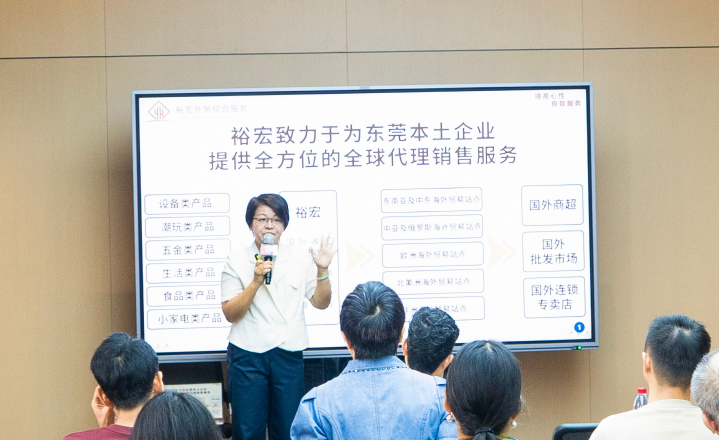 裕宏外贸综合服务
提高心性
极致服务
裕宏致力于为东莞本土企业
提供全方位的全球代理销售服务
设备类产品
潮玩类产品
五金类产品
生活类产品
食品类产品
小家电类产品
裕宏
东南亚及中东海外贸易站点
中亚及俄罗斯海外贸易站点
欧洲海外贸易站点
北美洲海外贸易站点
贸易站点
国外商超
国外
批发市场
国外连锁
专卖店
1